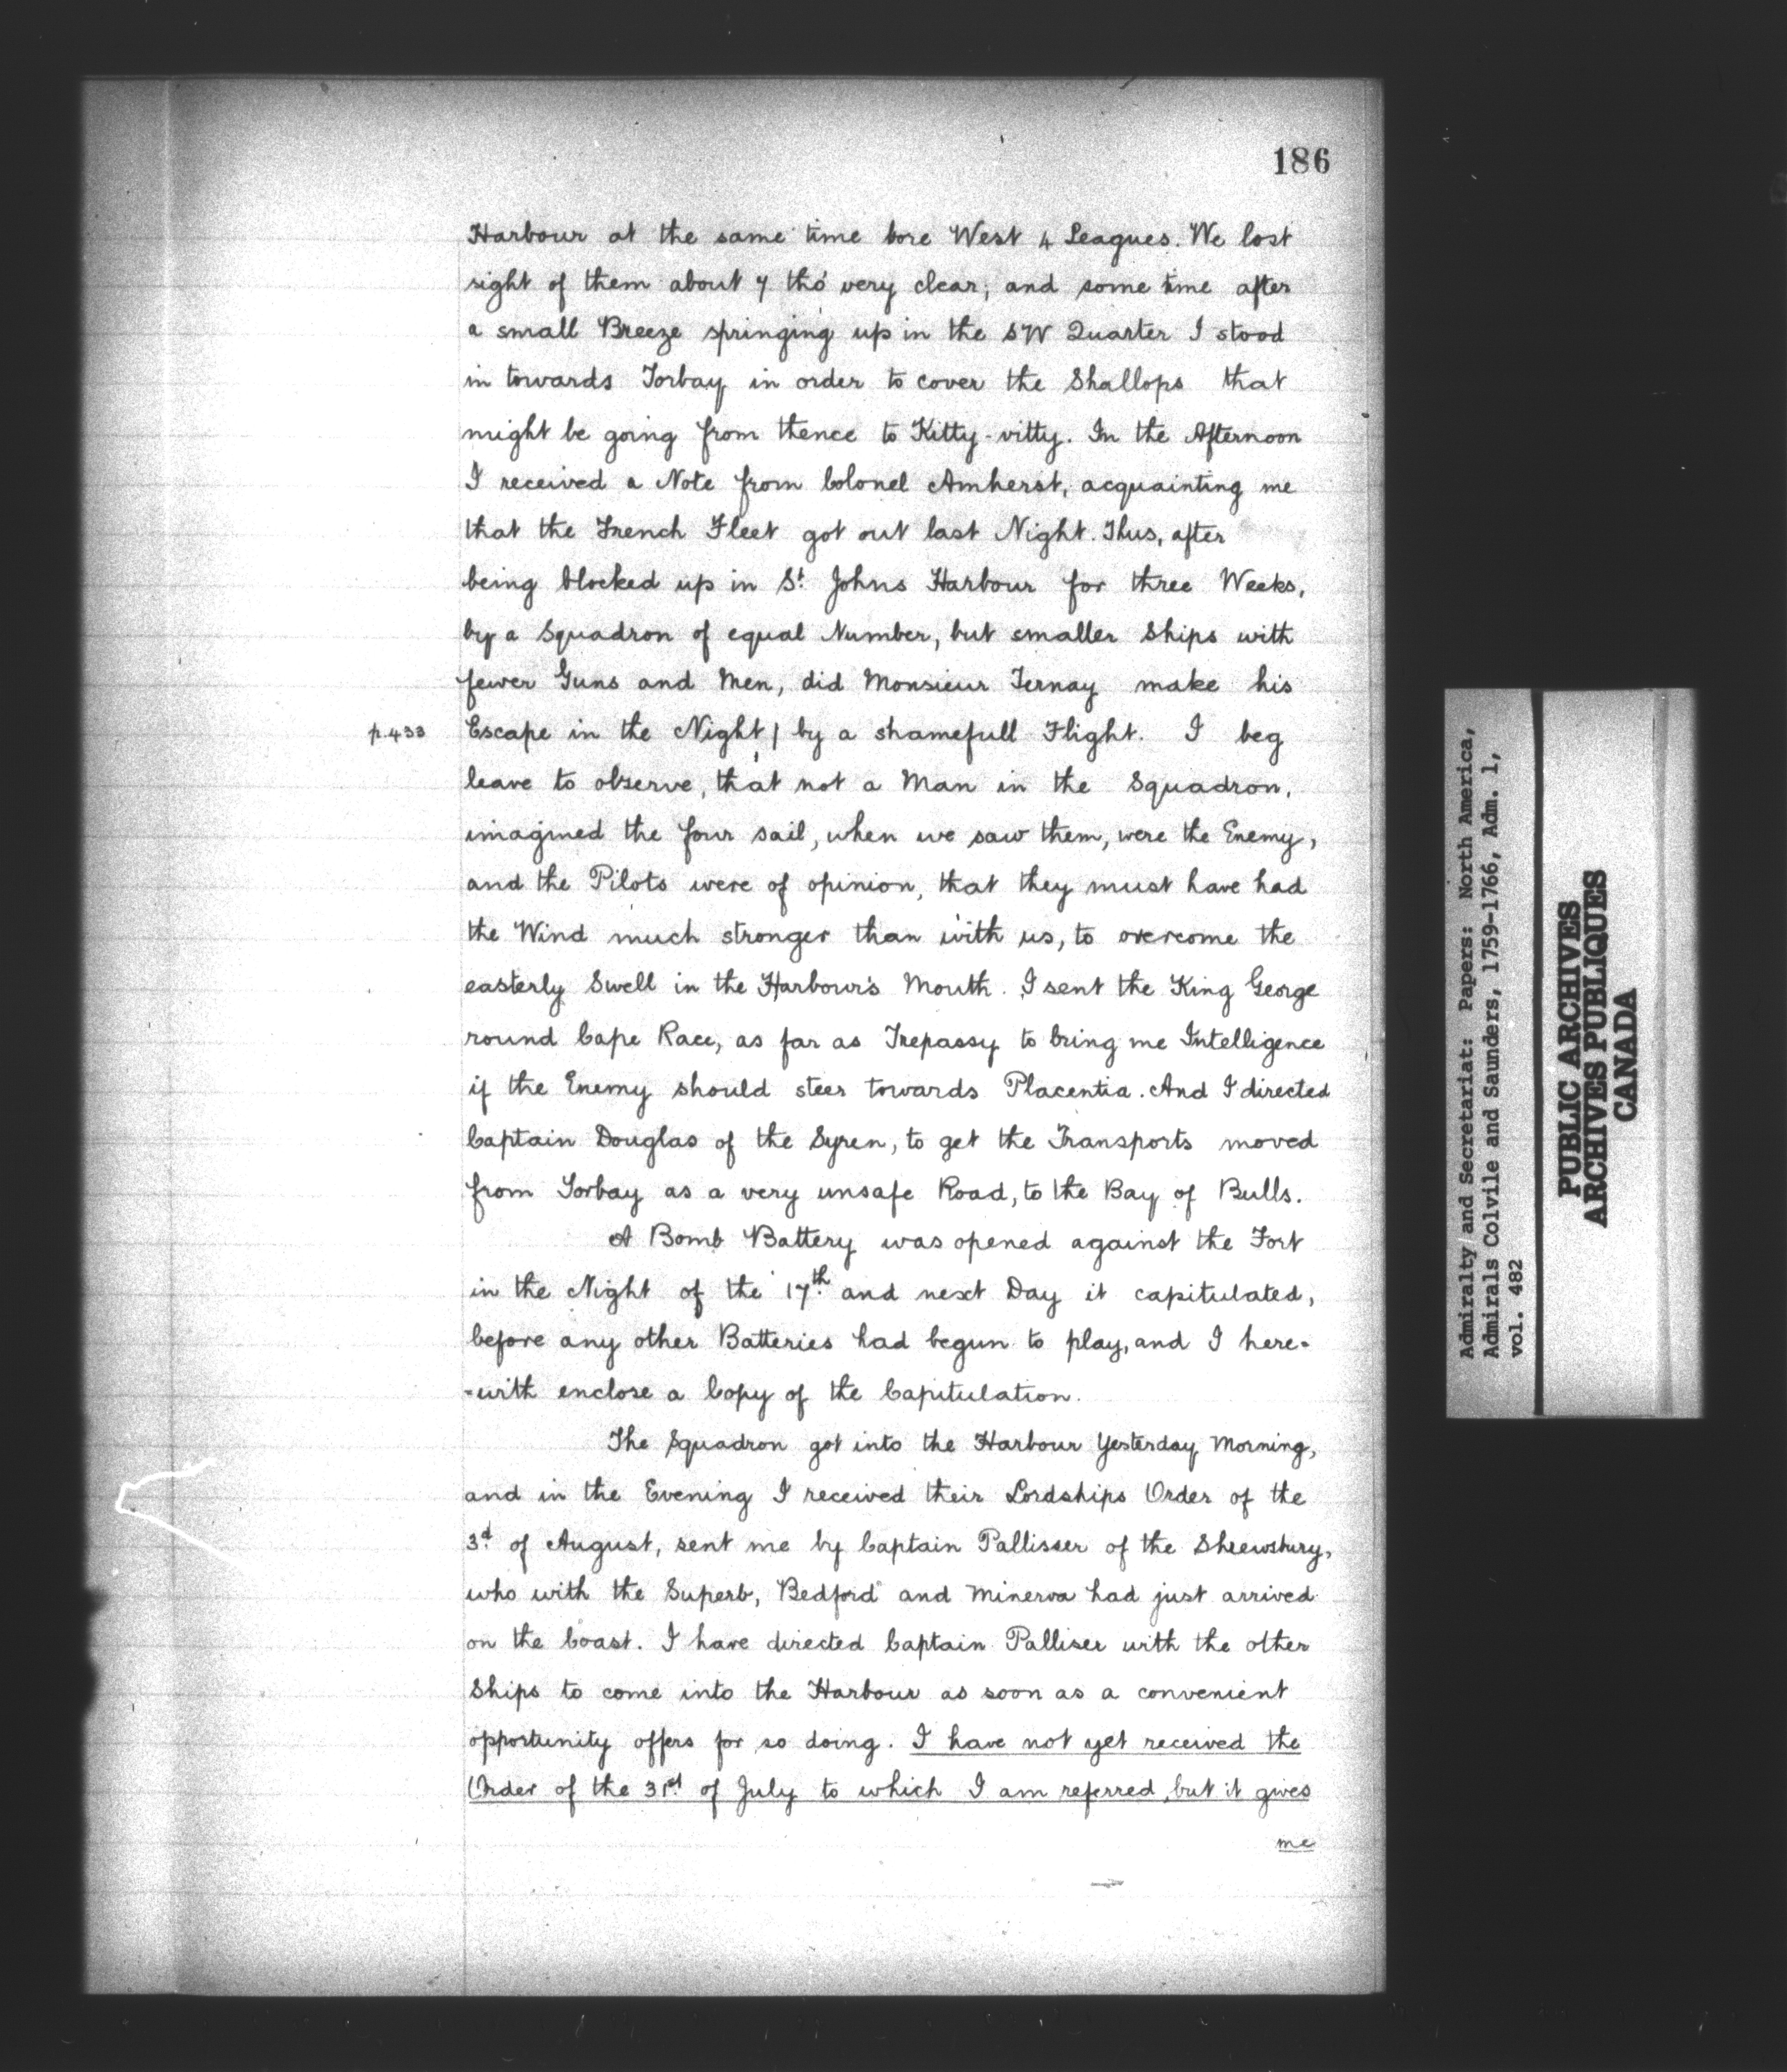 186
Harbour at the same time bore West 4 Leagues. We lost
sight of them about 7 tho' very clear; and some time after
a small Breeze springing up in the SW Quarter I stood
in towards Torbay in order to cover the Shallops that
might be going from thence to Kitty-vitty. In the Afternoon
I received a Note from Colonel Amherst, acquainting me
that the French Fleet got out last Night. Thus, after
being blocked up in St. Johns Harbour for three Weeks,
by a Squadron of equal Number, but smaller Ships with
fewer Guns and Men, did Monsieur Ternay make his
p.433 Escape in the Night / by a shamefull Flight. I beg
leave to observe, that not a Man in the Squadron,
imagined the four sail, when we saw them, were the Enemy,
and the Pilots were of opinion, that they must have had
the Wind much stronger than with us, to overcome the
easterly Swell in the Harbour's Mouth. I sent the King George
round Cape Race, as far as Trepassy to bring me Intelligence
if the Enemy should steer towards Placentia. And I directed
Captain Douglas of the Syren, to get the Transports moved
from Torbay as a very unsafe Road, to the Bay of Bulls.
A Bomb Battery was opened against the Fort
in the Night of the 17th. and next Day it capitulated,
before any other Batteries had begun to play, and I here-
-with enclose a Copy of the Capitulation.
The Squadron got into the Harbour Yesterday Morning,
and in the Evening I received their Lordships Order of the
3d. of August, sent me by Captain Pallisser of the Shrewsbury,
who with the Superb, Bedford and Minerva had just arrived
on the Coast. I have directed Captain Palliser with the other
Ships to come into the Harbour as soon as a convenient
opportunity offers for so doing. I have not yet received the
Order of the 31st. of July to which I am referred, but it gives
me
Admiralty and Secretariat: Papers: North America,
Admirals Colvile and Saunders, 1759-1766, Adm. 1,
vol. 482
PUBLIC ARCHIVES
ARCHIVES PUBLIQUES
CANADA